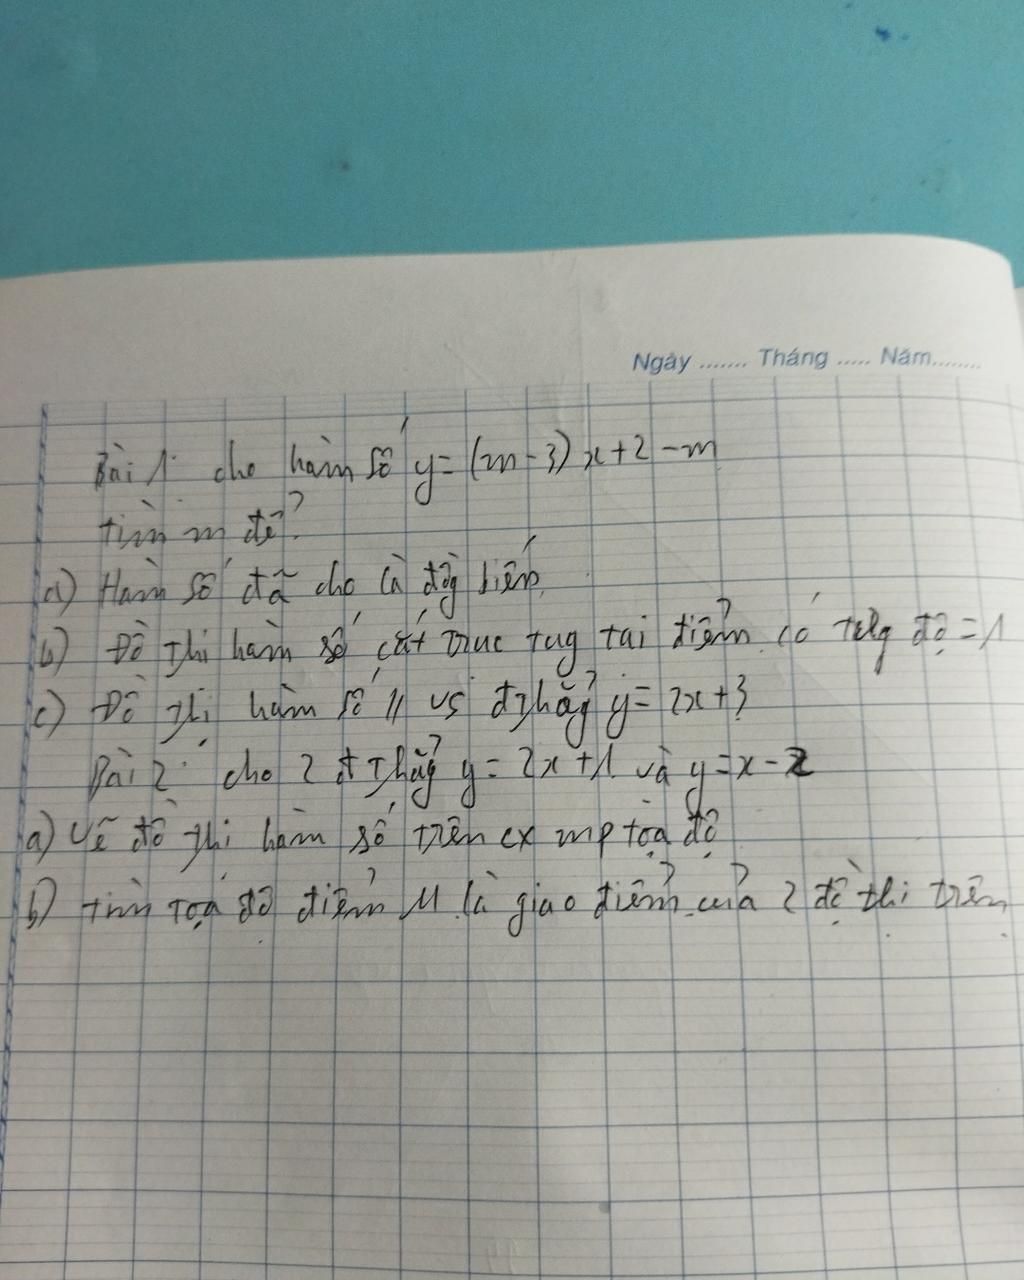 Ngày ....... Tháng ..... Năm........
Bài 1: cho hàm số y = (m - 3) x + 2 - m
tìm m để?
a) Hàm số đã cho là đồg biến
b) Đồ thị hàm số cắt trục tug tại điểm có tug độ = 1
c) Đồ thị hàm số // vs đ thẳg y = 2x + 3
Bài 2: cho 2 đ thẳg y = 2x + 1 và y = x - 2
a) vẽ đồ thị hàm số trên cx mp tọa độ
b) tìm tọa độ điểm M là giao điểm của 2 đồ thị trên